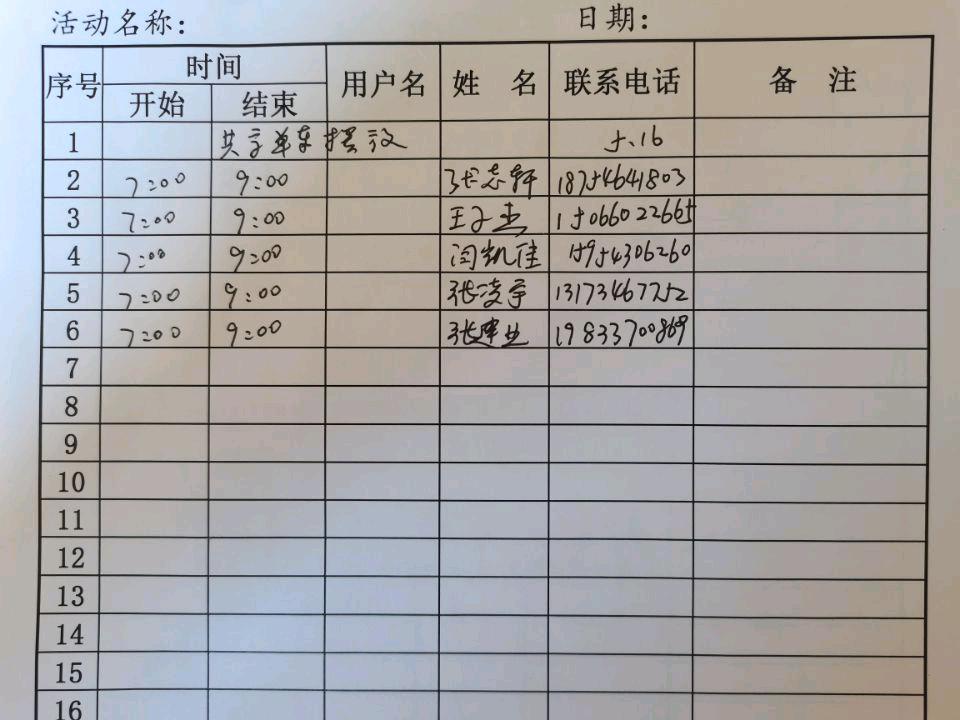 活动名称: 日期:
序号 时间 用户名 姓 名 联系电话 备 注
开始 结束
1 共享单车摆放 5.16
2 7:00 9:00 张志轩 18754641803
3 7:00 9:00 王子杰 15066022665
4 7:00 9:00 闫凯佳 15954306260
5 7:00 9:00 张凌宇 13173467752
6 7:00 9:00 张建业 19833700869
7
8
9
10
11
12
13
14
15
16